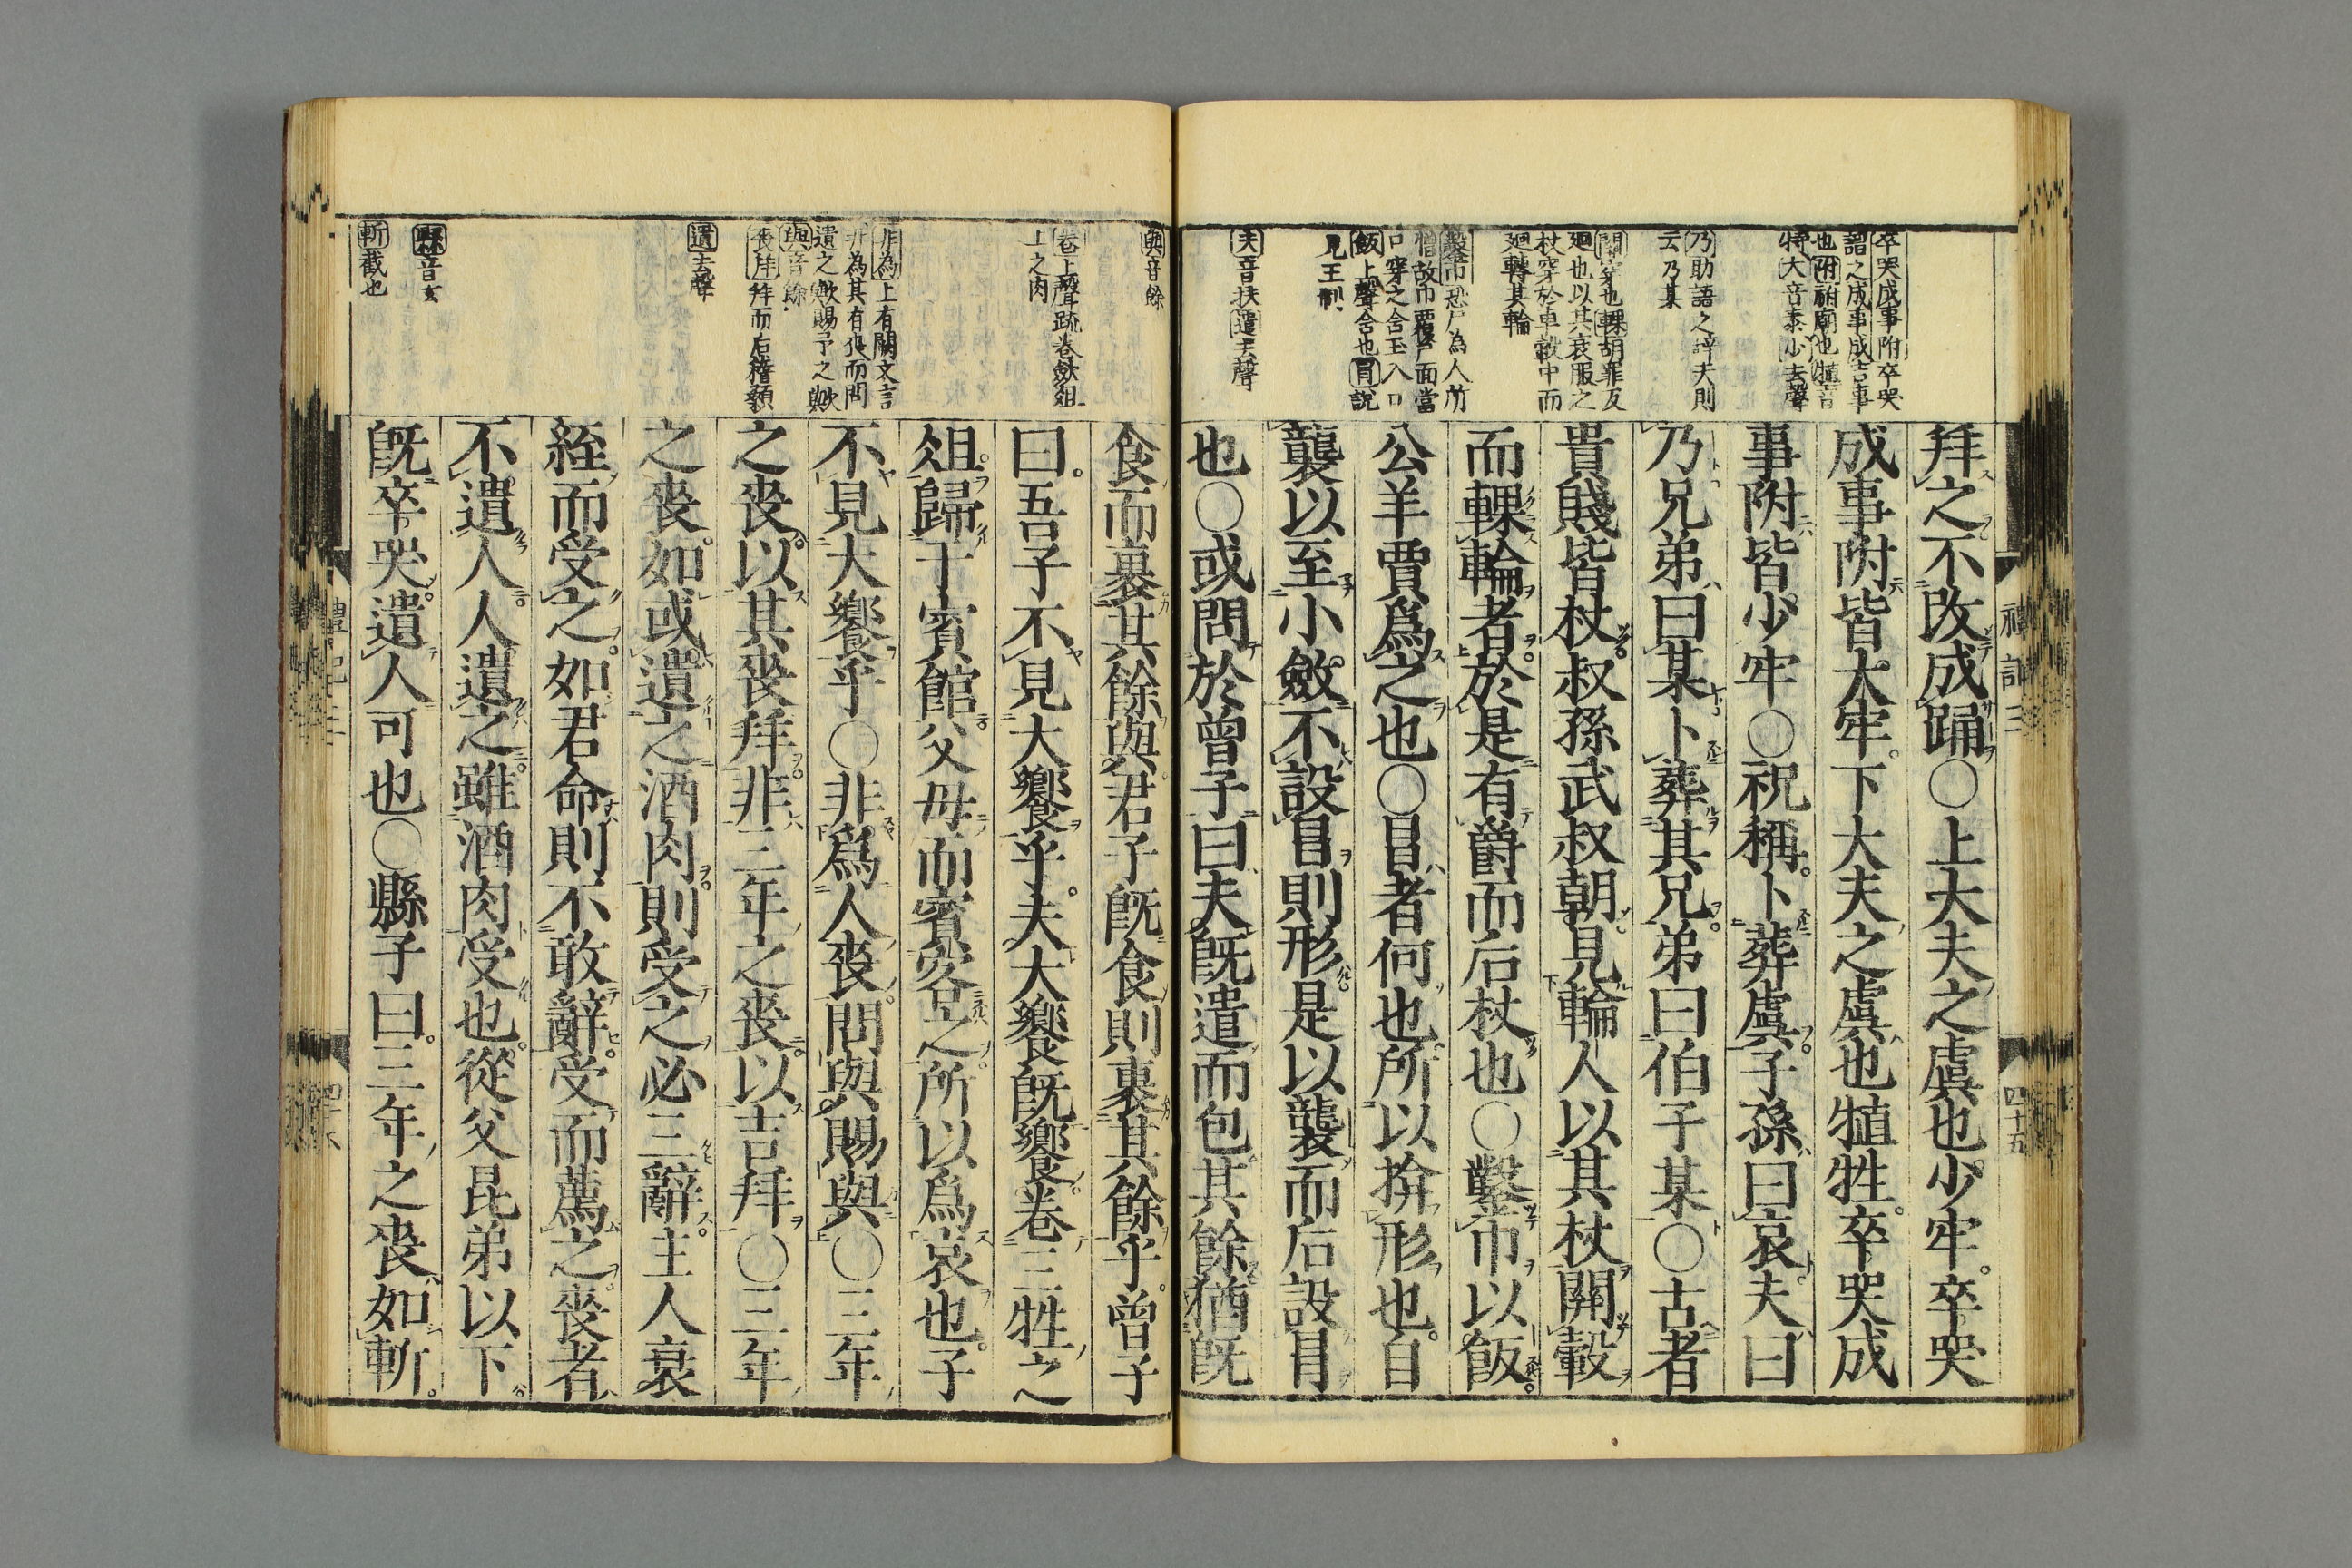 卒哭成事附卒哭
謂之成事成吉事
也附祔廟也犆音
特大音泰少去聲
乃助語之辞夫則
云乃某
關穿也輠胡罪反
廻也以其衰服之
杖穿於車轂中而
廻轉其輪
鑿巾恐尸為人所
憎故巾覆尸面當
口穿之含玉入口
飯上聲含也冒説
見王制
夫音扶遣去聲
拜之不改成踊○上大夫之虞也少牢卒哭
成事附皆大牢下大夫之虞也犆牲卒哭成
事附皆少牢○祝稱卜葬虞子孫曰哀夫曰
乃兄弟曰某卜葬其兄弟曰伯子某○古者
貴賤皆杖叔孫武叔朝見輪人以其杖關轂
而輠輪者於是有爵而后杖也○鑿巾以飯
公羊賈爲之也○冒者何也所以揜形也自
襲以至小斂不設冒則形是以襲而后設冒
也○或問於曾子曰夫旣遣而包其餘猶旣
禮記三
四十五
與音餘
卷上聲疏卷斂俎
上之肉
非為上有闕文言
非為其有喪而問
遺之歟賜予之歟
與音餘
喪拜拜而后稽顙
遺去聲
縣音玄
斬截也
食而裹其餘與君子旣食則裹其餘乎曾子
曰吾子不見大饗乎夫大饗旣饗卷三牲之
俎歸于賓館父母而賓客之所以爲哀也子
不見大饗乎○非爲人喪問與賜與○三年
之喪以其喪拜非三年之喪以吉拜○三年
之喪如或遺之酒肉則受之必三辭主人衰
絰而受之如君命則不敢辭受而薦之喪者
不遺人人遺之雖酒肉受也從父昆弟以下
旣卒哭遺人可也○縣子曰三年之喪如斬
禮記三